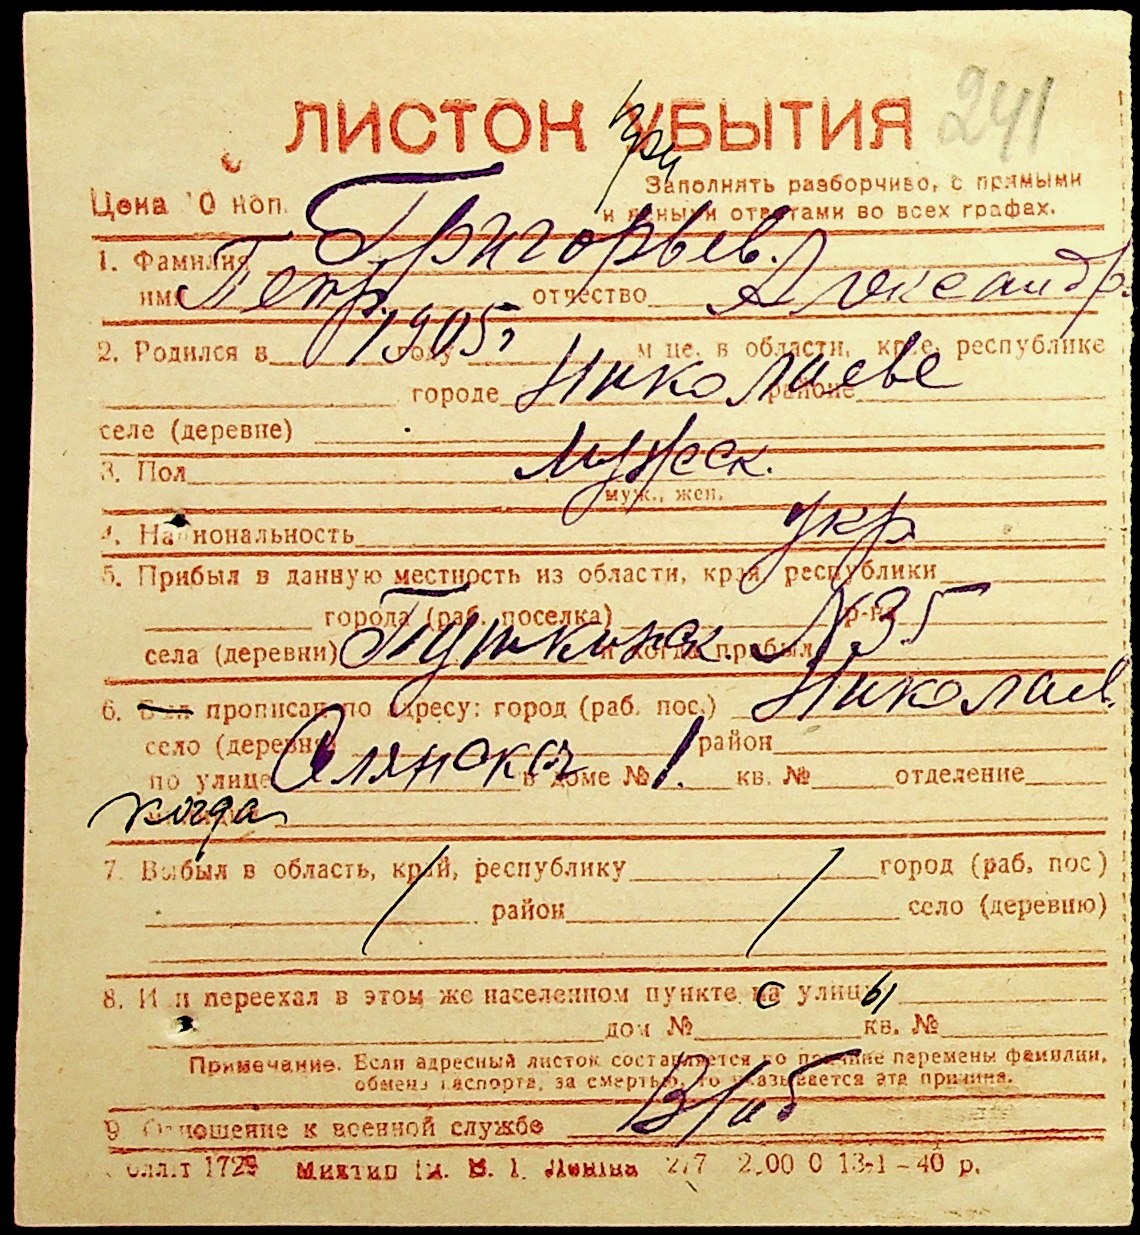 241
ЛИСТОК УБЫТИЯ
при
Цена 10 коп.
Заполнять разборчиво, с прямыми
и ясными ответами во всех графах.
1. Фамилия Григорьев.
имя Петр. отчество Александр.
2. Родился в 1905 г году м це, в области, крае, республике
городе Николаеве районе
селе (деревне)
3. Пол Мужск.
муж., жен.
4. Национальность укр
5. Прибыл в данную местность из области, края, республики
города (раб. поселка) р-на
села (деревни) Пушкинск. №35 и когда прибыл
6. Был прописан по адресу: город (раб. пос.) Николаев.
село (деревня) район
по улице в доме № 1. кв. № отделение
когда
7. Выбыл в область, край, республику город (раб. пос)
район село (деревню)
8. И и переехал в этом же населенном пункте с улицы
дом № кв. №
Примечание. Если адресный листок составляется по причине перемены фамилии,
обмена паспорта, за смертью, то указывается эта причина.
9 Отношение к военной службе
1729 им. В. І. Леніна 2/7 2.00 0 13-1-40 р.